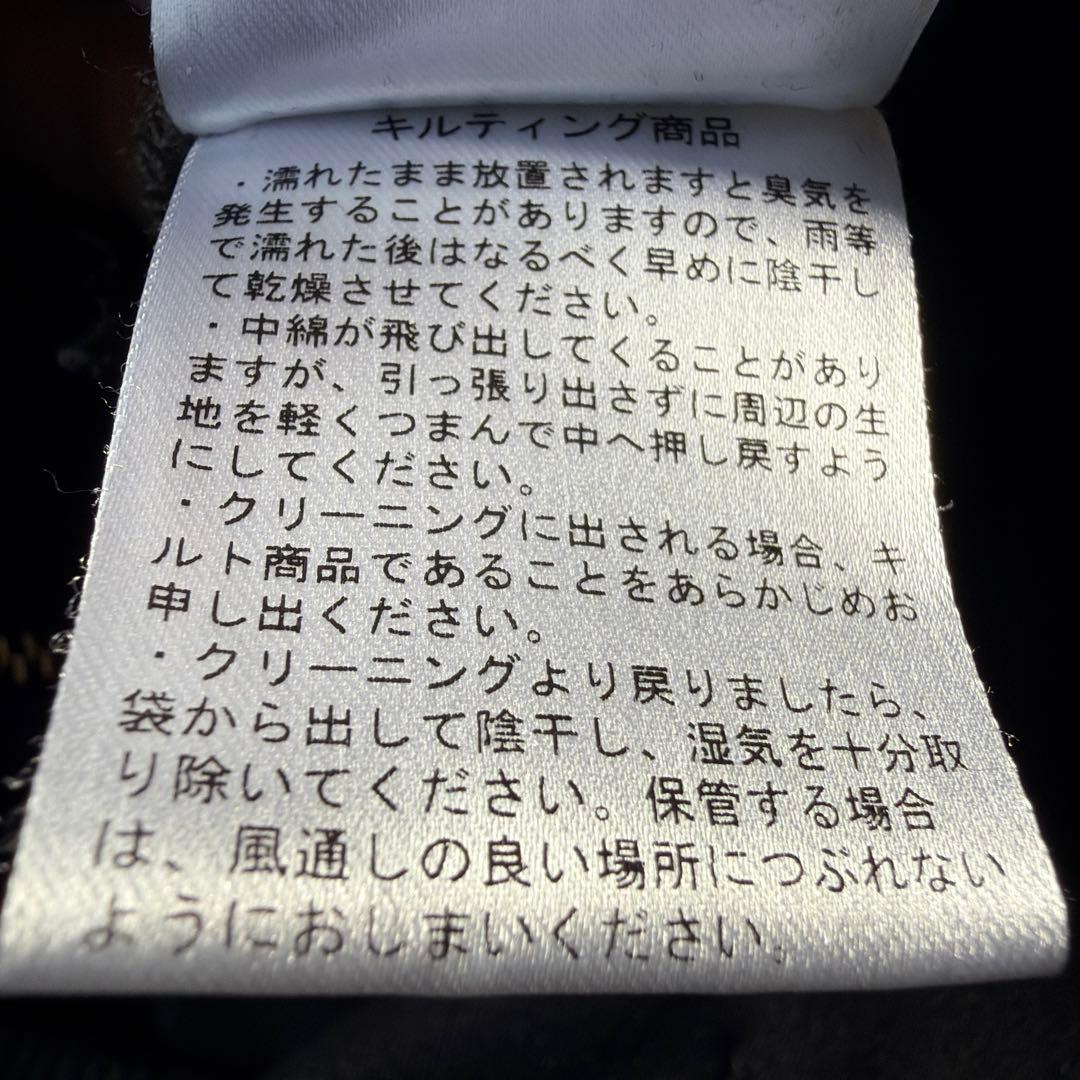 キルティング商品
・濡れたまま放置されますと臭気を
発生することがありますので、雨等
で濡れた後はなるべく早めに陰干し
て乾燥させてください。
・中綿が飛び出してくることがあり
ますが、引っ張り出さずに周辺の生
地を軽くつまんで中へ押し戻すよう
にしてください。
・クリーニングに出される場合、キ
ルト商品であることをあらかじめお
申し出ください。
・クリーニングより戻りましたら、
袋から出して陰干し、湿気を十分取
り除いてください。保管する場合
は、風通しの良い場所につぶれない
ようにおしまいください。